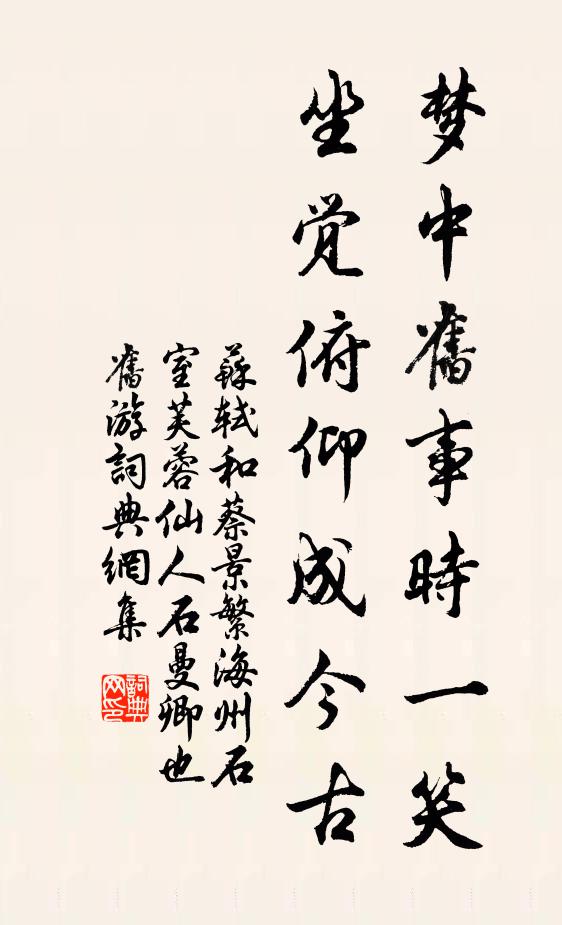 梦中舊事時一笑
坐觉俯仰成今古
蘇轼和蔡景繁海州石
室芙蓉仙人石曼卿也
舊游詞典網集
詞典网印